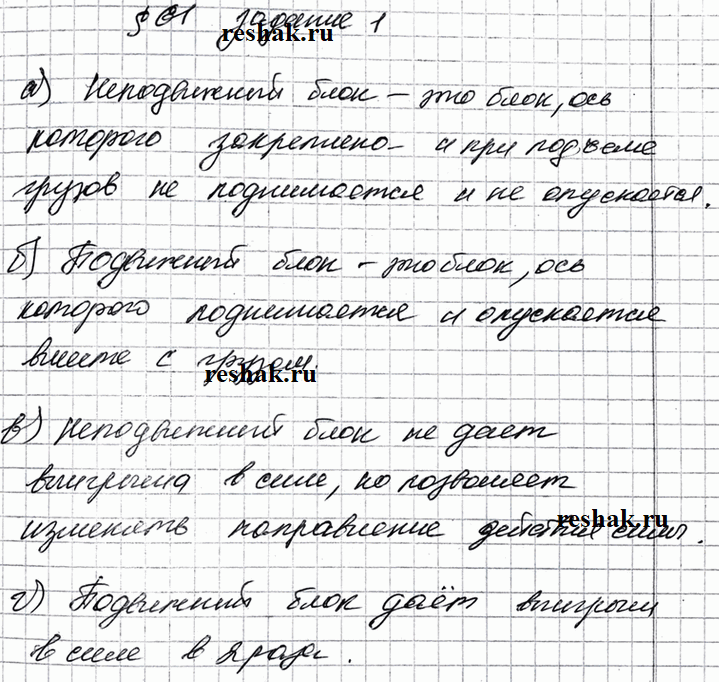 § 61 задание 1
reshak.ru
а) Неподвижный блок – это блок, ось
которого закреплено и при подъеме
грузов не поднимается и не опускается.
б) Подвижный блок – это блок, ось
которого поднимается и опускается
вместе с грузом.
reshak.ru
в) Неподвижный блок не дает
выигрыша в силе, но позволяет
изменять направление действия силы.
reshak.ru
г) Подвижный блок даёт выигрыш
в силе в 2 раза.